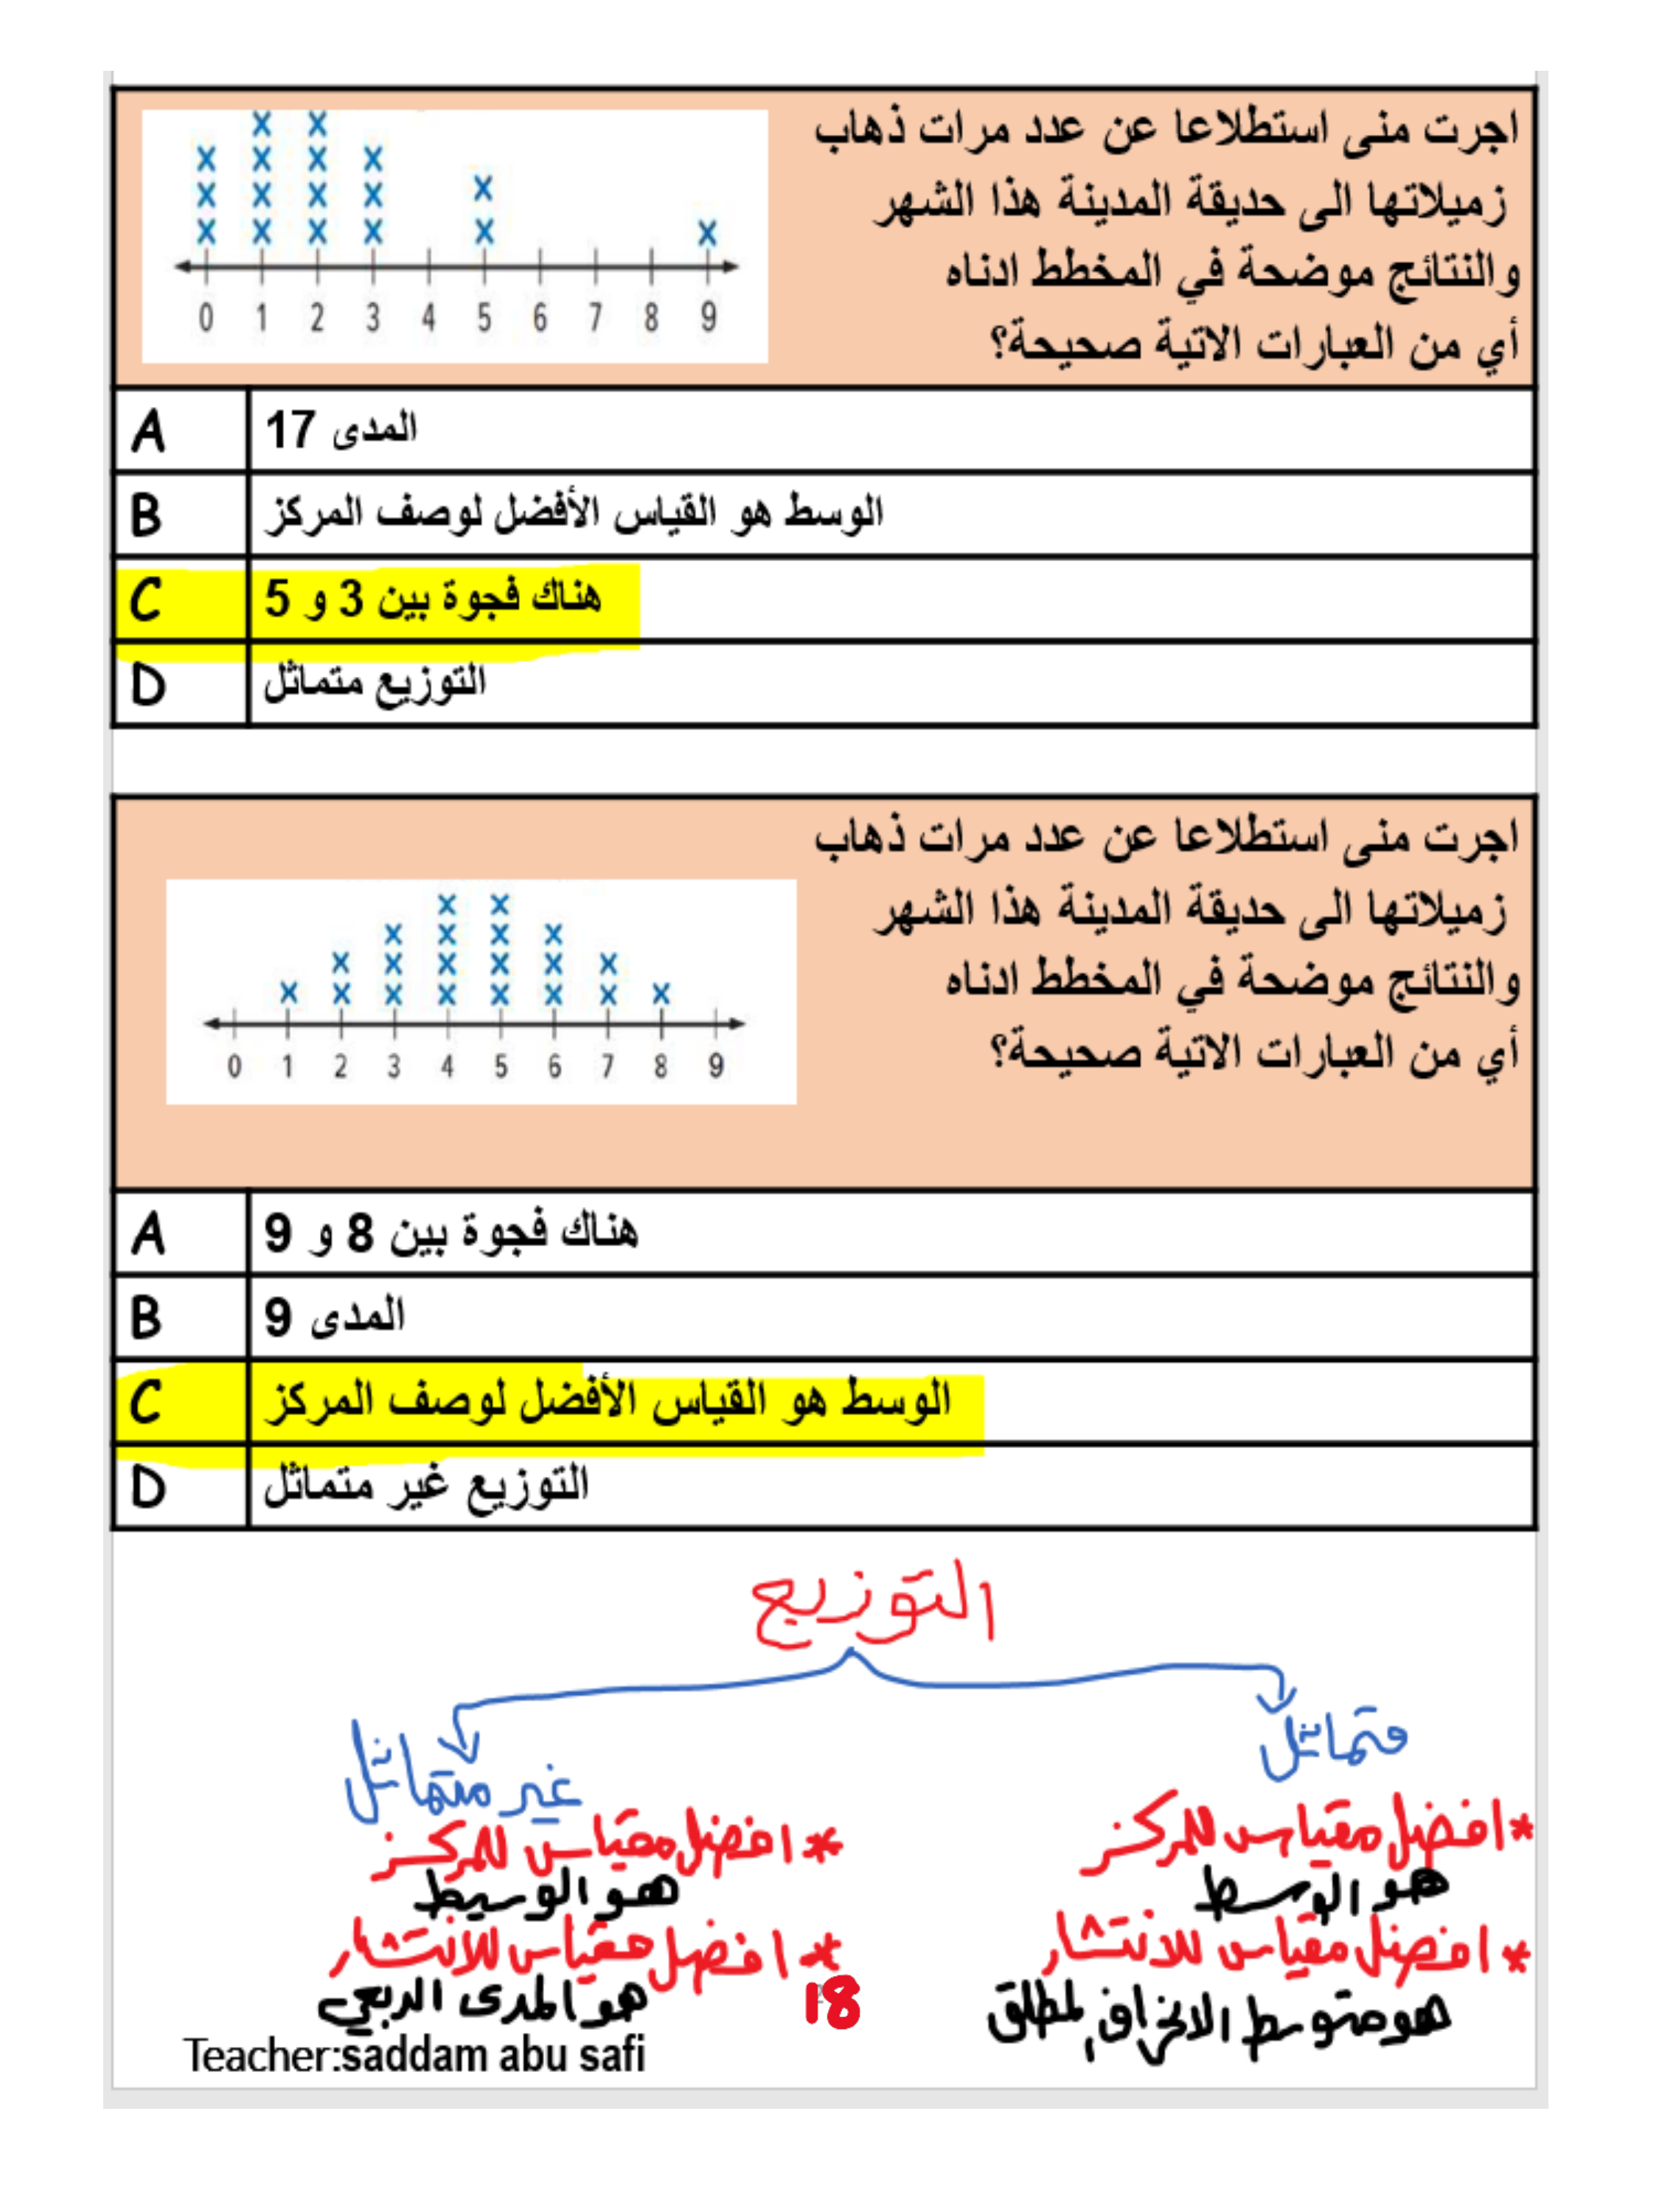 اجرت منى استطلاعا عن عدد مرات ذهاب
زميلاتها الى حديقة المدينة هذا الشهر
والنتائج موضحة في المخطط ادناه
أي من العبارات الاتية صحيحة؟
0 1 2 3 4 5 6 7 8 9
A المدى 17
B الوسط هو القياس الأفضل لوصف المركز
C هناك فجوة بين 3 و 5
D التوزيع متماثل
اجرت منى استطلاعا عن عدد مرات ذهاب
زميلاتها الى حديقة المدينة هذا الشهر
والنتائج موضحة في المخطط ادناه
أي من العبارات الاتية صحيحة؟
0 1 2 3 4 5 6 7 8 9
A هناك فجوة بين 8 و 9
B المدى 9
C الوسط هو القياس الأفضل لوصف المركز
D التوزيع غير متماثل
التوزيع
متماثل
* افضل مقياس للمركز
هو الوسط
* افضل مقياس للانتشار
هو متوسط الانحراف المطلق
غير متماثل
* افضل مقياس للمركز
هو الوسيط
* افضل مقياس للانتشار
هو المدى الربعي
18
Teacher:saddam abu safi